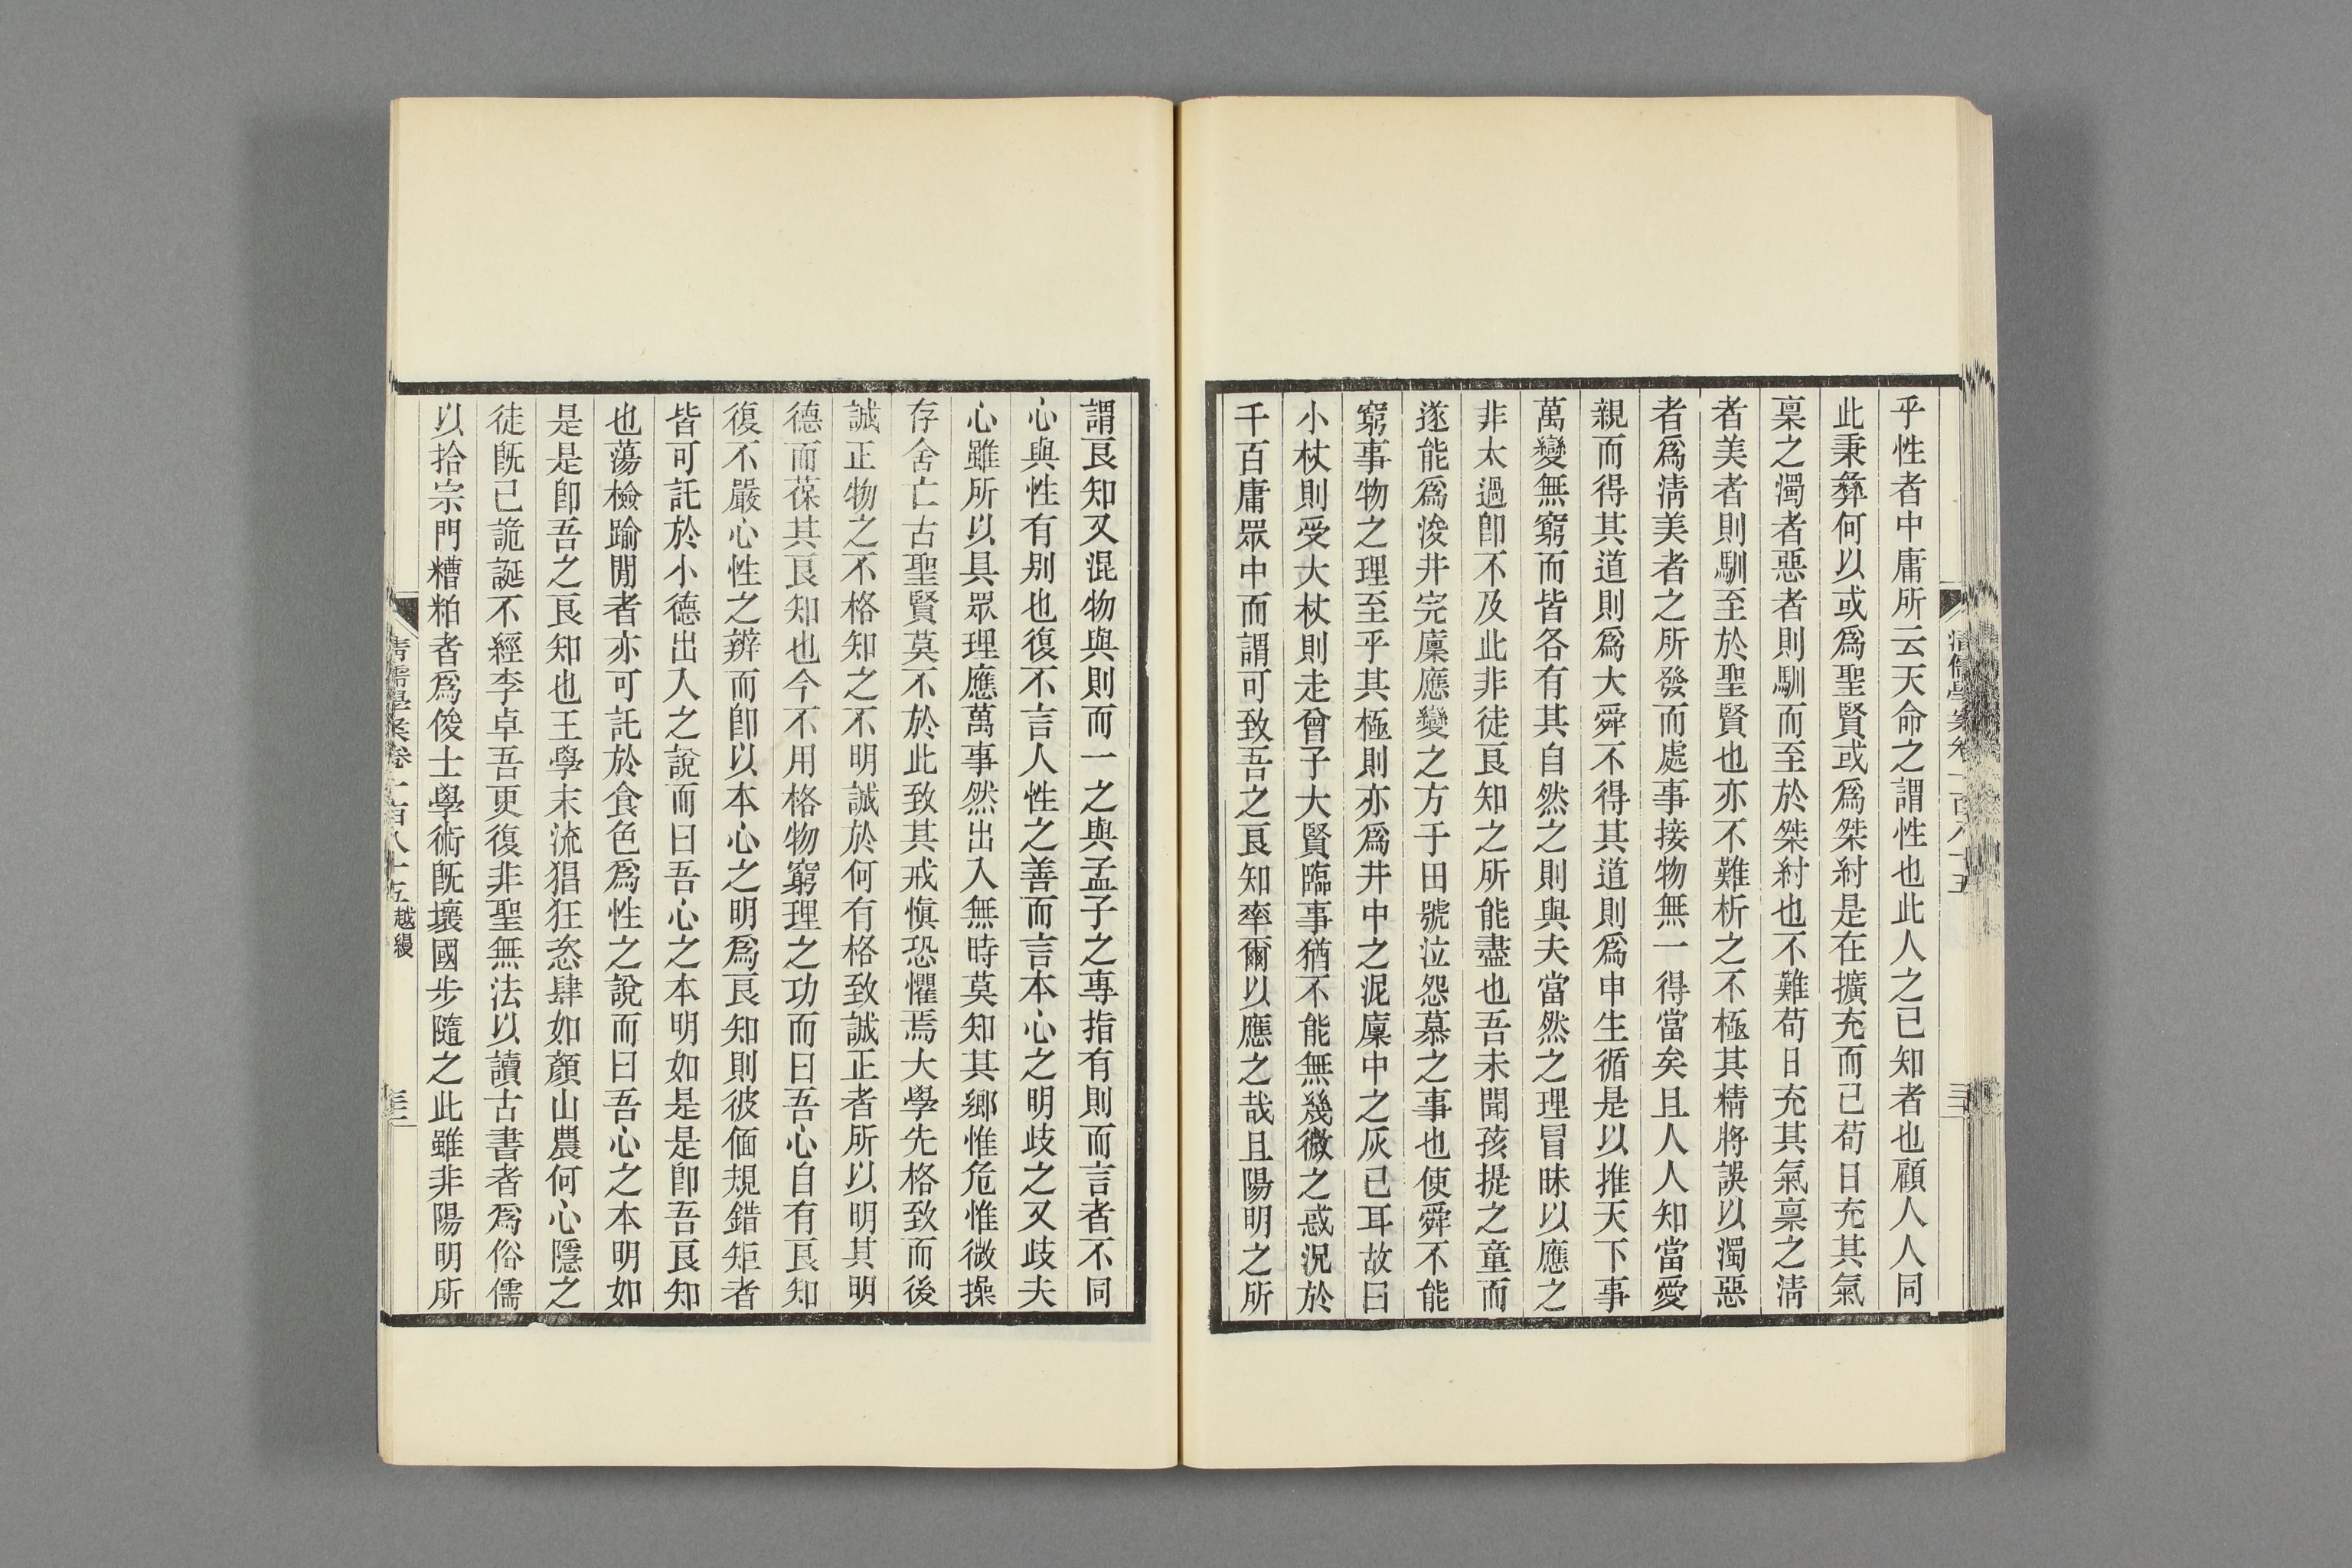 乎性者中庸所云天命之謂性也此人之已知者也顧人人同
此秉彝何以或爲聖賢或爲桀紂是在擴充而已苟日充其氣
稟之濁者惡者則馴而至於桀紂也不難苟日充其氣稟之淸
者美者則馴至於聖賢也亦不難析之不極其精將誤以濁惡
者爲淸美者之所發而處事接物無一得當矣且人人知當愛
親而得其道則爲大舜不得其道則爲申生循是以推天下事
萬變無窮而皆各有其自然之則與夫當然之理冒昧以應之
非太過卽不及此非徒良知之所能盡也吾未聞孩提之童而
遂能爲浚井完廩應變之方于田號泣怨慕之事也使舜不能
窮事物之理至乎其極則亦爲井中之泥廩中之灰已耳故曰
小杖則受大杖則走曾子大賢臨事猶不能無幾微之惑況於
千百庸眾中而謂可致吾之良知率爾以應之哉且陽明之所
謂良知又混物與則而一之與孟子之專指有則而言者不同
心與性有別也復不言人性之善而言本心之明歧之又歧夫
心雖所以具眾理應萬事然出入無時莫知其鄉惟危惟微操
存舍亡古聖賢莫不於此致其戒愼恐懼焉大學先格致而後
誠正物之不格知之不明誠於何有格致誠正者所以明其明
德而葆其良知也今不用格物窮理之功而曰吾心自有良知
復不嚴心性之辨而卽以本心之明爲良知則彼偭規錯矩者
皆可託於小德出入之說而曰吾心之本明如是是卽吾良知
也蕩檢踰閒者亦可託於食色爲性之說而曰吾心之本明如
是是卽吾之良知也王學末流猖狂恣肆如顏山農何心隱之
徒旣已詭誕不經李卓吾更復非聖無法以讀古書者爲俗儒
以拾宗門糟粕者爲俊士學術旣壞國步隨之此雖非陽明所
淸儒學案卷一百八十五 越縵